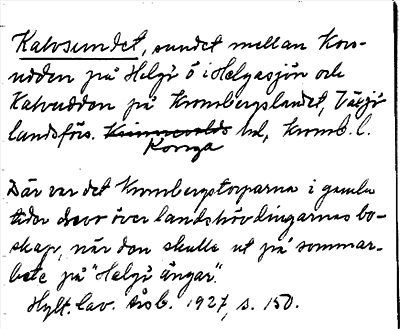 Kalvsundet, sundet mellan Kors-
udden på Helgö i Helgasjön och
Kalvudden på Kronobergslandet, Växjö
landsförs. Kinnevalds hd, Kronob. l.
Konga
Där var det Kronobergstorparna i gamla
tider drevo över landshövdingarnas bo-
skap, när den skulle ut på sommar-
bete på "Helgö ängar".
Hylt. Cav. Årsb. 1927, s. 150.